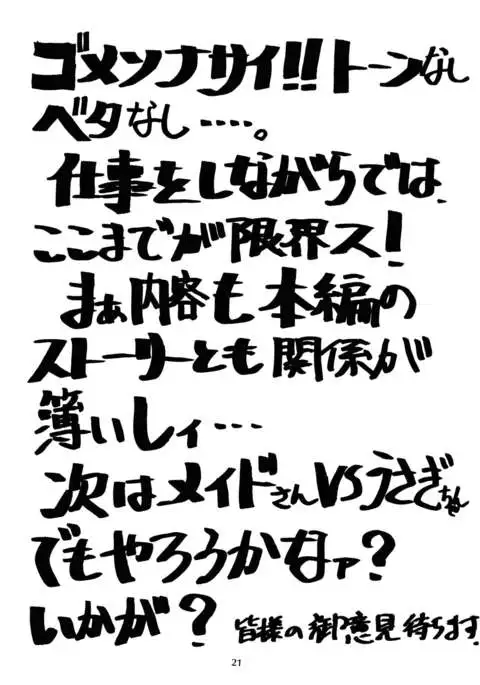 ゴメンナサイ!!トーンなし
ベタなし……。
仕事をしながらでは、
ここまでが限界ス!
まぁ内容も本編の
ストーリーとも関係が
簿いしィ…
次はメイドさんVSうさぎちゃん
でもやろうかなァ?
いかが? 皆様の御意見待ちます。
21